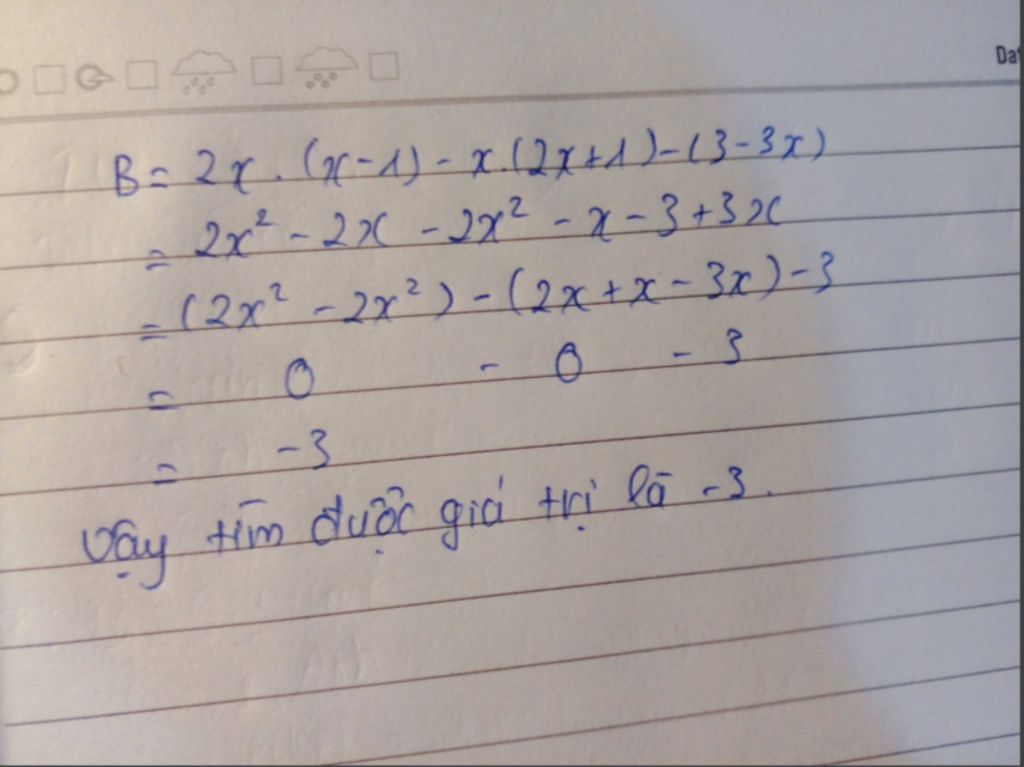 Da
B = 2x . (x-1) - x.(2x+1) - (3-3x)
= 2x² - 2x - 2x² - x - 3 + 3x
= (2x² - 2x²) - (2x + x - 3x) - 3
= 0 - 0 - 3
= -3
Vậy tìm được giá trị là -3.